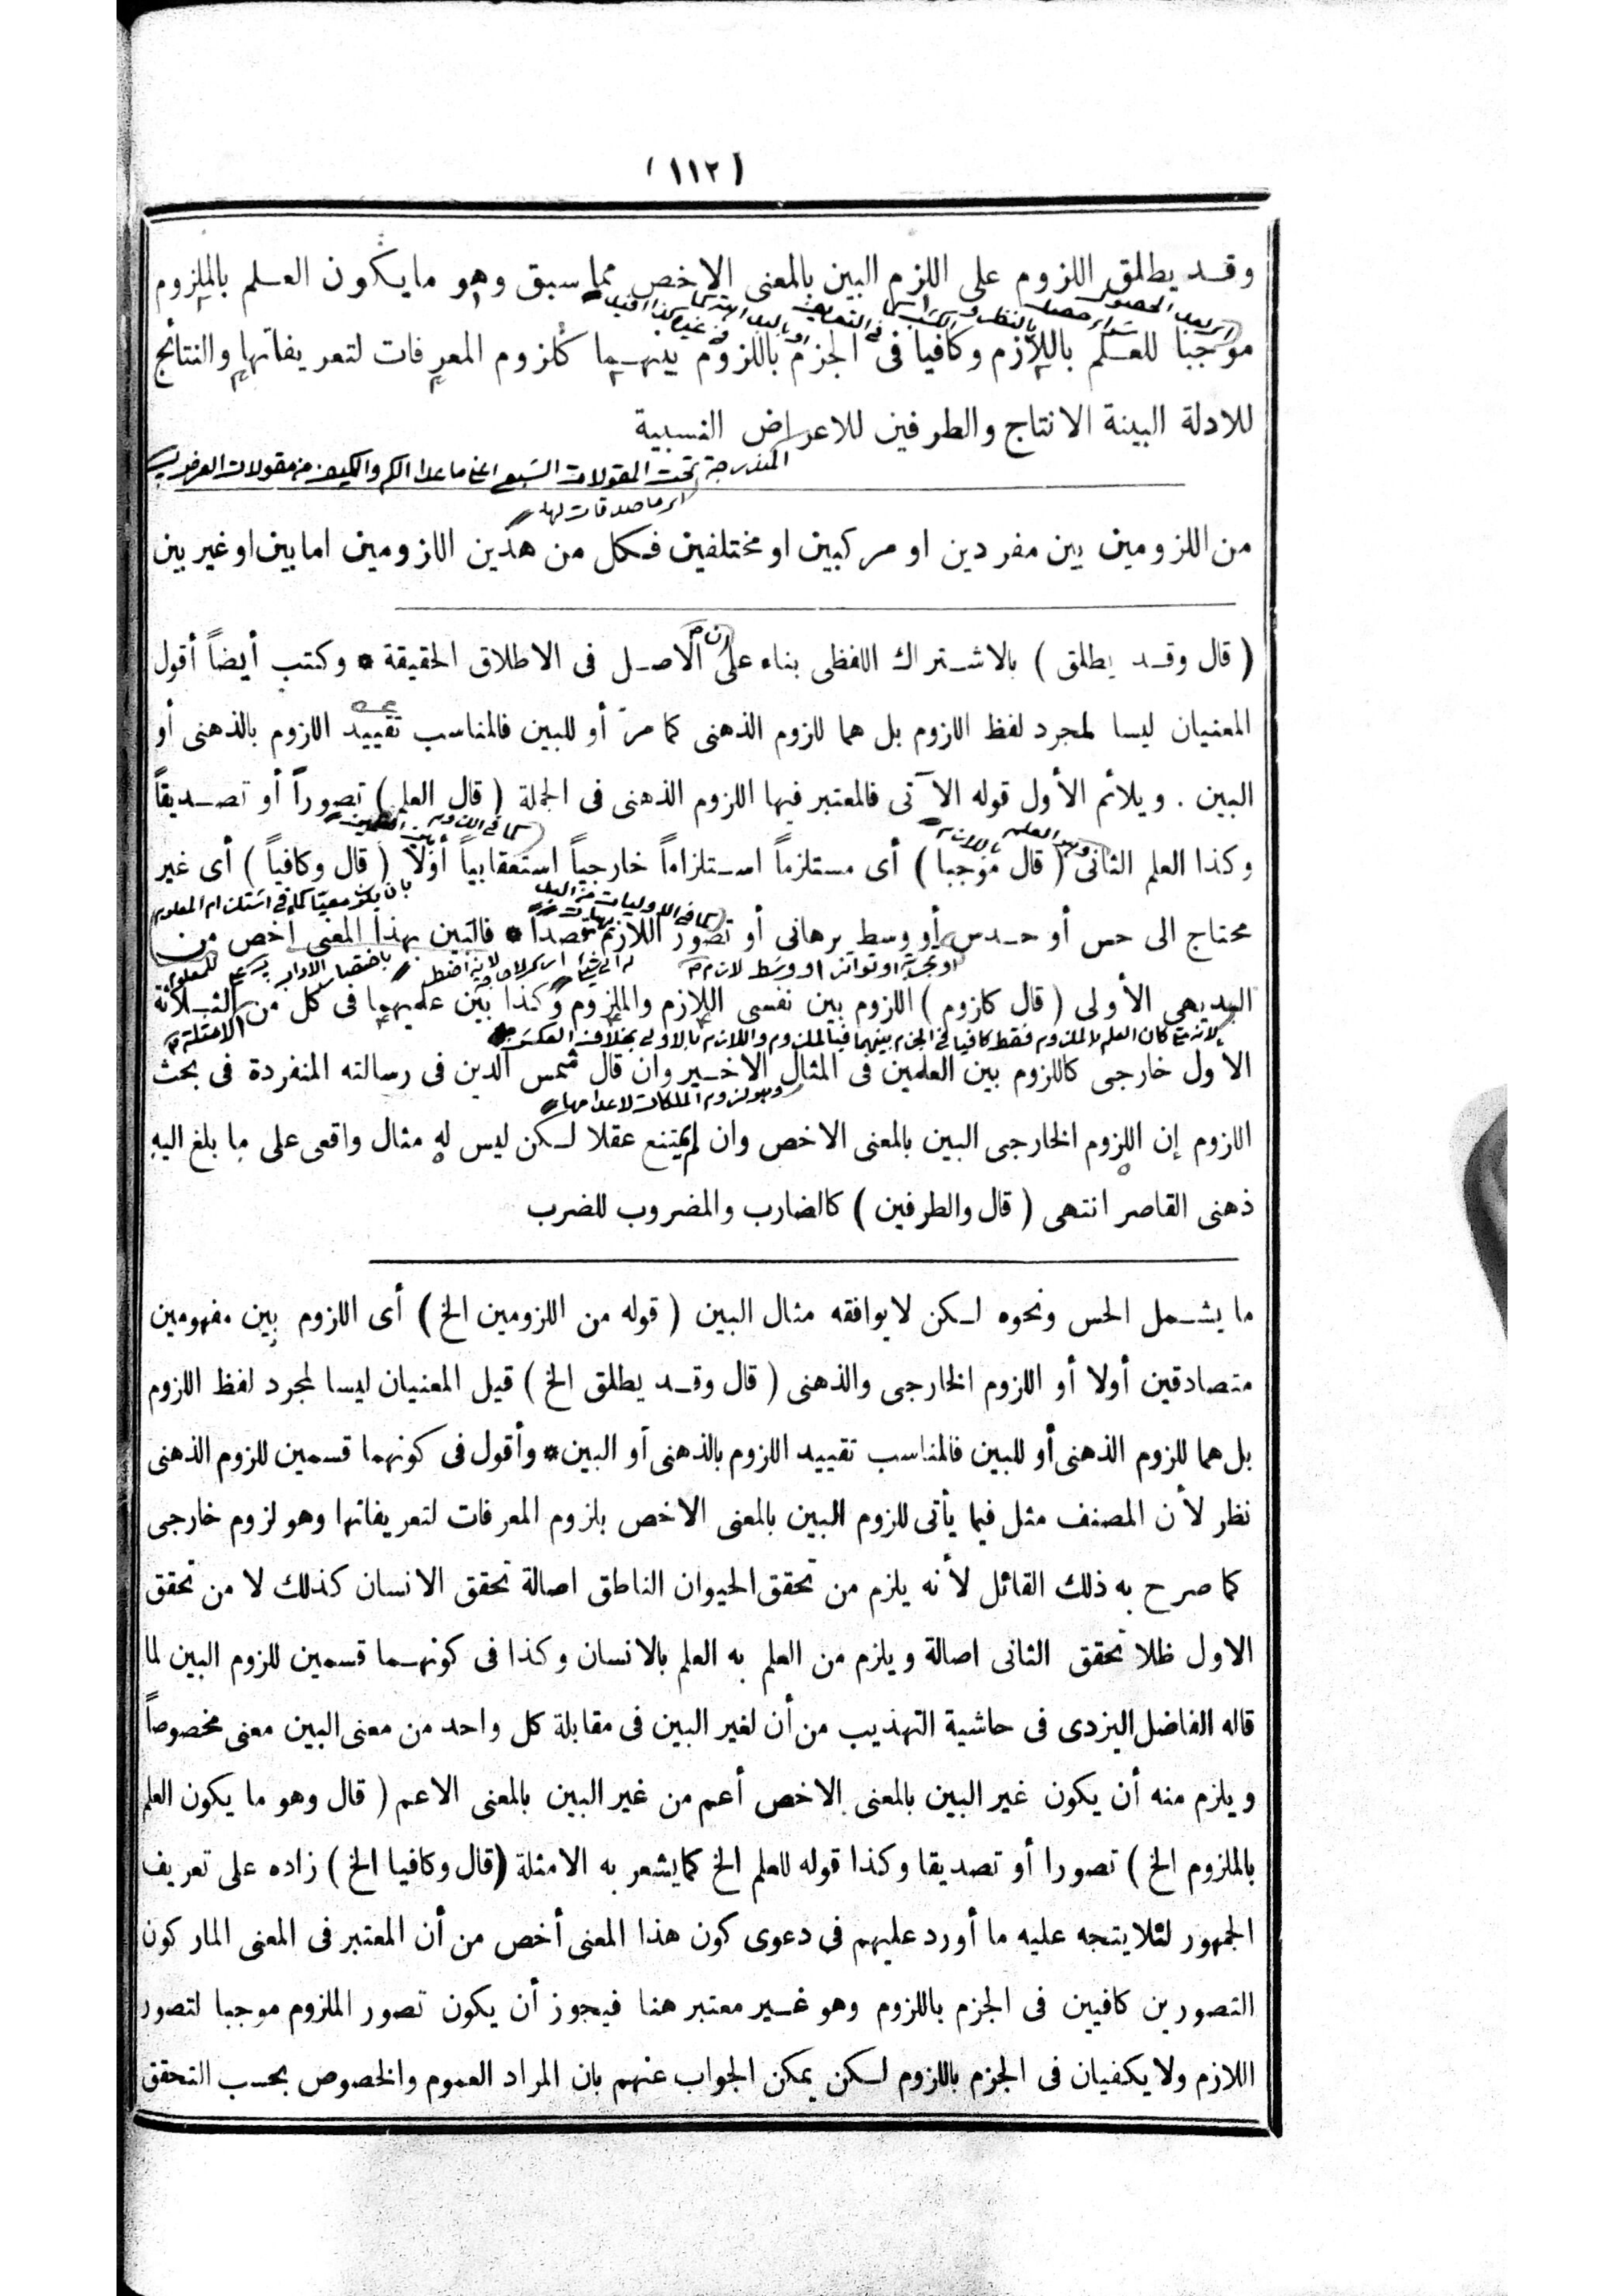 (١١٢)
وقد يطلق اللزوم على اللزم البين بالمعنى الاخص مما سبق وهو مايكون العلم بالملزوم
موجبا للعلم باللازم وكافيا فى الجزم باللزوم بينهما كلزوم المعرفات لتعريفاتها والنتائج
للادلة البينة الانتاج والطرفين للاعراض النسبية
المندرجة تحت المقولات السبع اعنى ما عدا الكم والكيف من مقولات العرض
اى ما صدقات لها
من اللزومين بين مفردين او مركبين او مختلفين فكل من هذين اللزومين اما بين او غير بين
( قال وقد يطلق ) بالاشتراك اللفظى بناء على ان الاصل فى الاطلاق الحقيقة * وكتب أيضاً أقول
المعنيان ليسا لمجرد لفظ اللزوم بل هما للزوم الذهنى كما مرّ أو للبين فالمناسب تقييد اللزوم بالذهنى أو
البين . ويلائم الأول قوله الآتى فالمعتبر فيها اللزوم الذهنى فى الجملة ( قال العلم ) تصوراً أو تصديقاً
وكذا العلم الثانى ( قال موجبا ) أى مستلزماً استلزاماً خارجياً استعقابياً أوّلاً ( قال وكافياً ) أى غير
محتاج الى حس أو حدس أو وسط برهانى أو تصور اللازم قصدا * فالبين بهذا المعنى اخص من
او تجربة او تواتر او وسط
البديهى الأولى ( قال كلزوم ) اللزوم بين نفسى اللازم والملزوم وكذا بين علميهما فى كل من الثلاثة
الامثلة
الاول خارجى كاللزوم بين العلمين فى المثال الاخير وان قال شمس الدين فى رسالته المنفردة فى بحث
وهو لزوم الملكات لاعدامها
اللزوم إن اللزوم الخارجى البين بالمعنى الاخص وان لم يمتنع عقلا لكن ليس له مثال واقعى على ما بلغ اليه
ذهنى القاصر انتهى ( قال والطرفين ) كالضارب والمضروب للضرب
ما يشمل الحس ونحوه لكن لا يوافقه مثال البين ( قوله من اللزومين الخ ) أى اللزوم بين مفهومين
متصادقين أولا أو اللزوم الخارجى والذهنى ( قال وقد يطلق الخ ) قيل المعنيان ليسا لمجرد لفظ اللزوم
بل هما للزوم الذهنى أو للبين فالمناسب تقييد اللزوم بالذهنى أو البين * وأقول فى كونهما قسمين للزوم الذهنى
نظر لأن المصنف مثل فيما يأتى للزوم البين بالمعنى الاخص بلزوم المعرفات لتعريفاتها وهو لزوم خارجى
كما صرح به ذلك القائل لأنه يلزم من تحقق الحيوان الناطق اصالة تحقق الانسان كذلك لا من تحقق
الاول ظلا تحقق الثانى اصالة ويلزم من العلم به العلم بالانسان وكذا فى كونهما قسمين للزوم البين لما
قاله الفاضل اليزدى فى حاشية التهذيب من أن لغير البين فى مقابلة كل واحد من معنى البين معنى مخصوصاً
ويلزم منه أن يكون غير البين بالمعنى الاخص أعم من غير البين بالمعنى الاعم ( قال وهو ما يكون العلم
بالملزوم الخ ) تصورا أو تصديقا وكذا قوله للعلم الخ كما يشعر به الامثلة (قال وكافيا الخ ) زاده على تعريف
الجمهور لئلا يتجه عليه ما أورد عليهم فى دعوى كون هذا المعنى أخص من أن المعتبر فى المعنى المار كون
التصورين كافيين فى الجزم باللزوم وهو غير معتبر هنا فيجوز أن يكون تصور الملزوم موجبا لتصور
اللازم ولا يكفيان فى الجزم باللزوم لكن يمكن الجواب عنهم بان المراد العموم والخصوص بحسب التحقق